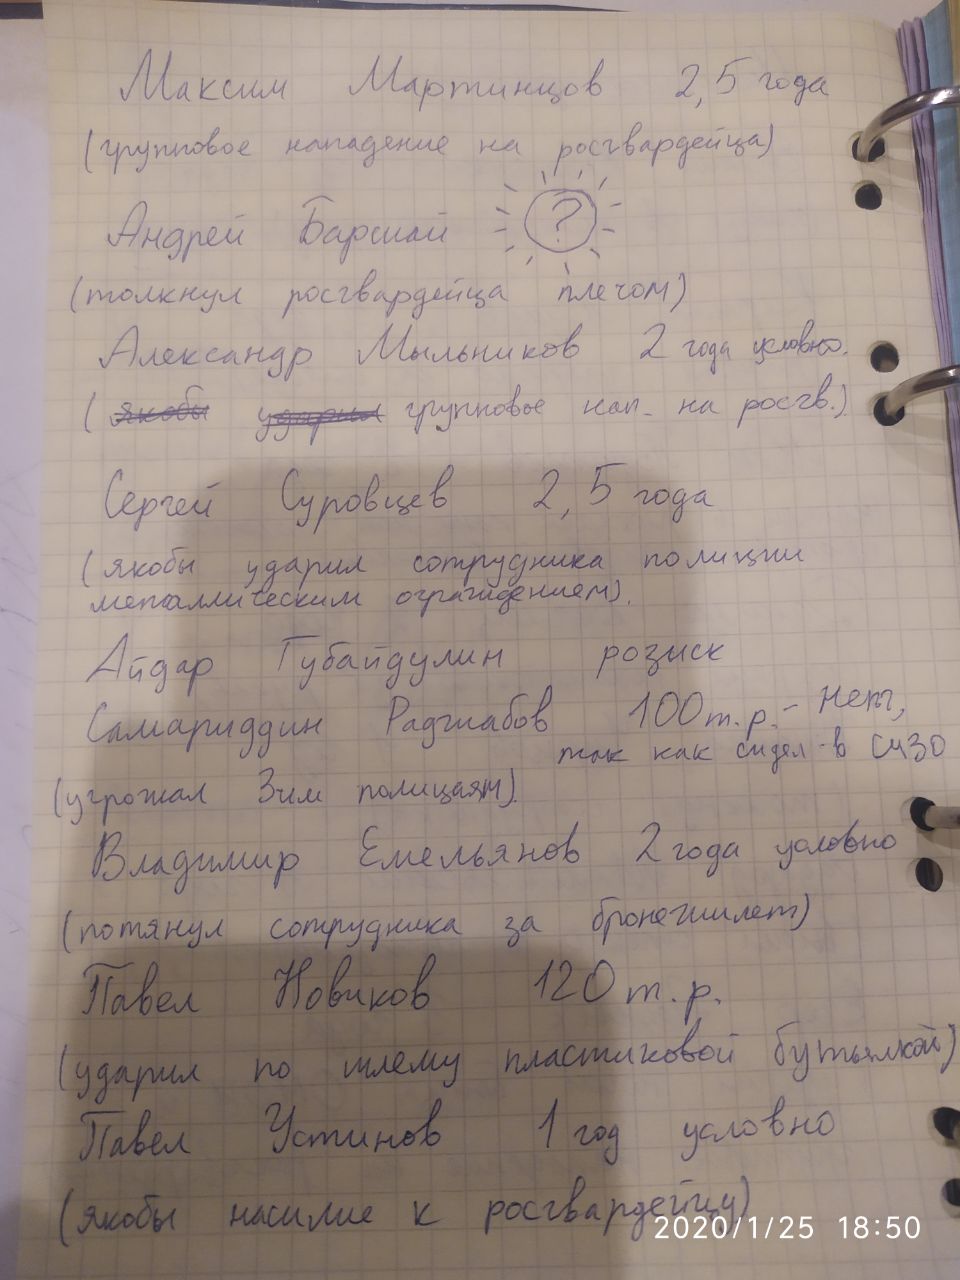 Максим Мартинцов 2,5 года
(групповое нападение на росгвардейца)
Андрей Барский ?
(толкнул росгвардейца плечом)
Александр Мыльников 2 года условно.
(якобы ударил групповое нап. на росгв.)
Сергей Суровцев 2,5 года
(якобы ударил сотрудника полиции
металлическим ограждением).
Айдар Губайдулин розыск
Самариддин Раджабов 100 т.р. - нет,
так как сидел в СИЗО
(угрожал 3-им полицаям).
Владимир Емельянов 2 года условно
(потянул сотрудника за бронежилет)
Павел Новиков 120 т.р.
(ударил по шлему пластиковой бутылкой)
Павел Устинов 1 год условно
(якобы насилие к росгвардейцу)
2020/1/25 18:50